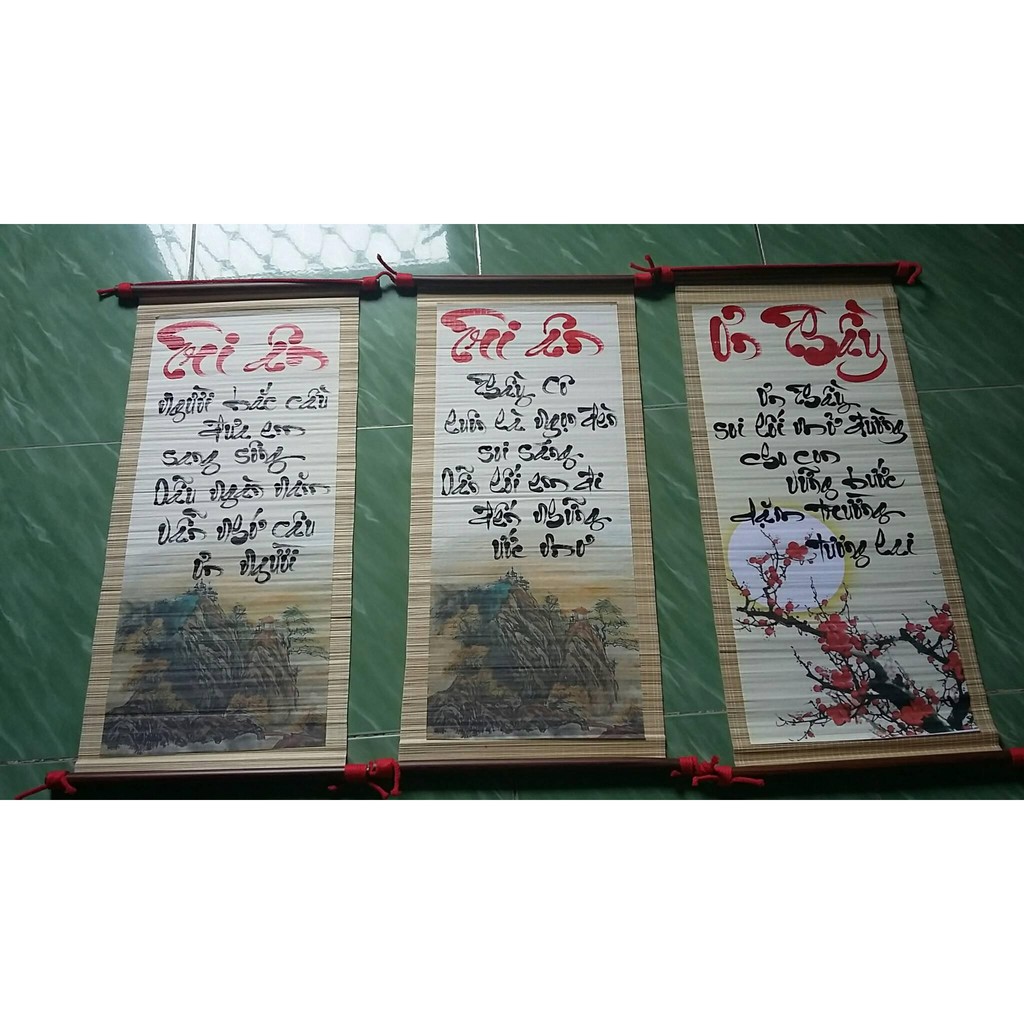 Tri Ân
Người bắc cầu
đưa em
sang sông
Dẫu ngàn năm
vẫn nhớ câu
ơn người
Tri Ân
Thầy cô
luôn là ngọn đèn
soi sáng
Dẫn lối em đi
đến những
ước mơ
Ơn Thầy
Ơn Thầy
soi lối mở đường
cho con
vững bước
dặm trường
tương lai